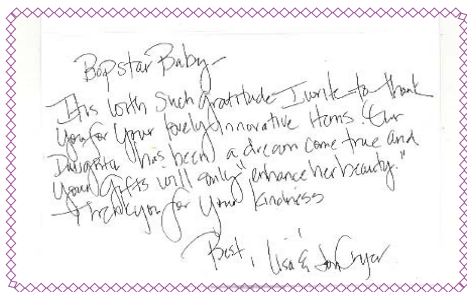 Bopstar Baby—
It is with such gratitude I write to thank
you for your lovely innovative items. Our
Daughter has been a dream come true and
your gifts will only "enhance her beauty."
Thank you for your kindness
Best, Lisa & Jon Cryer